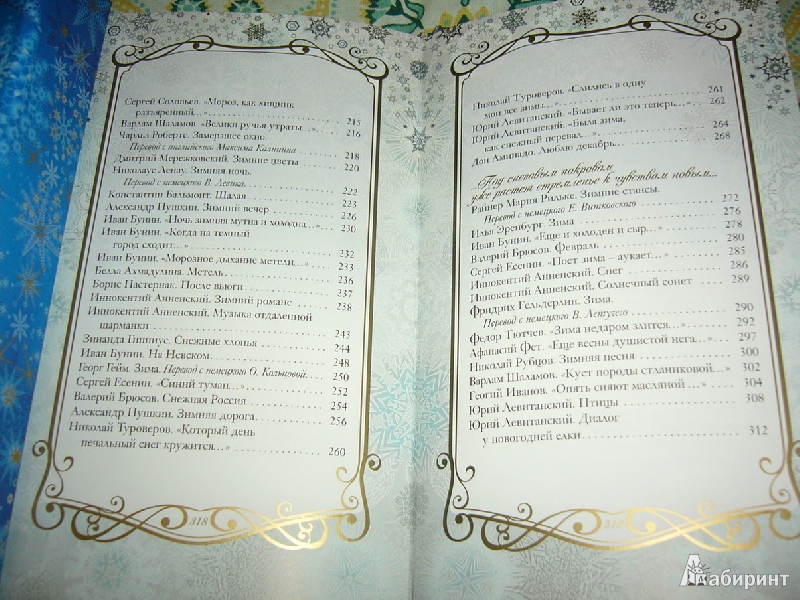 Сергей Соловьев. «Мороз, как хищник
разъяренный...» 215
Варлам Шаламов. «Велики ручья утраты...» 216
Чарльз Робертс. Замерзшее окно.
Перевод с английского Максима Калинина 218
Дмитрий Мережковский. Зимние цветы 220
Николаус Ленау. Зимняя ночь.
Перевод с немецкого В. Левика 222
Константин Бальмонт. Шалая 223
Александр Пушкин. Зимний вечер 226
Иван Бунин. «Ночь зимняя мутна и холодна...» 230
Иван Бунин. «Когда на темный
город сходит...» 232
Иван Бунин. «Морозное дыхание метели...» 233
Белла Ахмадулина. Метель 236
Борис Пастернак. После вьюги 237
Иннокентий Анненский. Зимний романс 238
Иннокентий Анненский. Музыка отдаленной
шарманки 243
Зинаида Гиппиус. Снежные хлопья 244
Иван Бунин. На Невском 248
Георг Гейм. Зима. Перевод с немецкого О. Кольцовой 250
Сергей Есенин. «Синий туман...» 252
Валерий Брюсов. Снежная Россия 254
Александр Пушкин. Зимняя дорога 256
Николай Туроверов. «Который день
печальный снег кружится...» 260
318
Николай Туроверов. «Слились в одну
мои все зимы...» 261
Юрий Левитанский. «Бывает ли это теперь...» 262
Юрий Левитанский. «Была зима,
как снежный перевал...» 264
Дон Аминадо. Люблю декабрь... 268
...Под снеговым покровом
уже растет стремленье к чувствам новым...
Райнер Мария Рильке. Зимние стансы.
Перевод с немецкого Е. Витковского 272
Илья Эренбург. Зима 276
Иван Бунин. «Еще и холоден и сыр...» 278
Валерий Брюсов. Февраль 280
Сергей Есенин. «Поет зима – аукает...» 285
Иннокентий Анненский. Снег 286
Иннокентий Анненский. Солнечный сонет 289
Фридрих Гельдерлин. Зима.
Перевод с немецкого В. Летучего 290
Федор Тютчев. «Зима недаром злится...» 292
Афанасий Фет. «Еще весны душистой нега...» 297
Николай Рубцов. Зимняя песня 300
Варлам Шаламов. «Куст породы стланиковой...» 302
Георгий Иванов. «Опять сияют масляной...» 304
Юрий Левитанский. Птицы 308
Юрий Левитанский. Диалог
у новогодней елки 312
319
Лабиринт